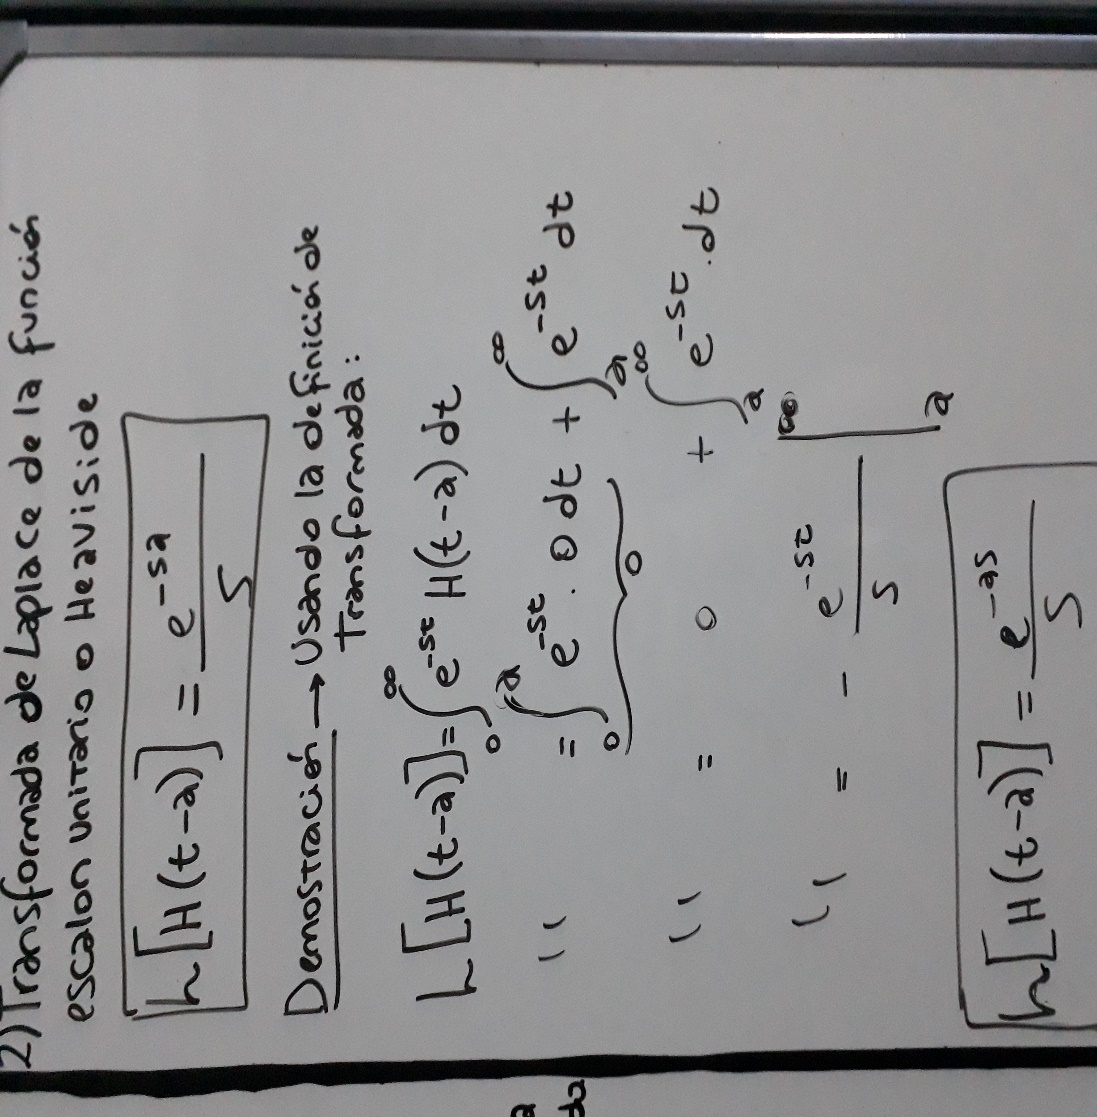 2) Transformada de Laplace de la función
escalon unitario o Heaviside
L[H(t-a)] = e^{-sa} / s
Demostración → Usando la definición de
Transformada:
L[H(t-a)] = ∫_0^∞ e^{-st} H(t-a) dt
" = ∫_0^a e^{-st} . 0 dt + ∫_a^∞ e^{-st} dt
0
" = 0 + ∫_a^∞ e^{-st} . dt
" = - e^{-st} / s |_a^∞
L[H(t-a)] = e^{-as} / s
a
da